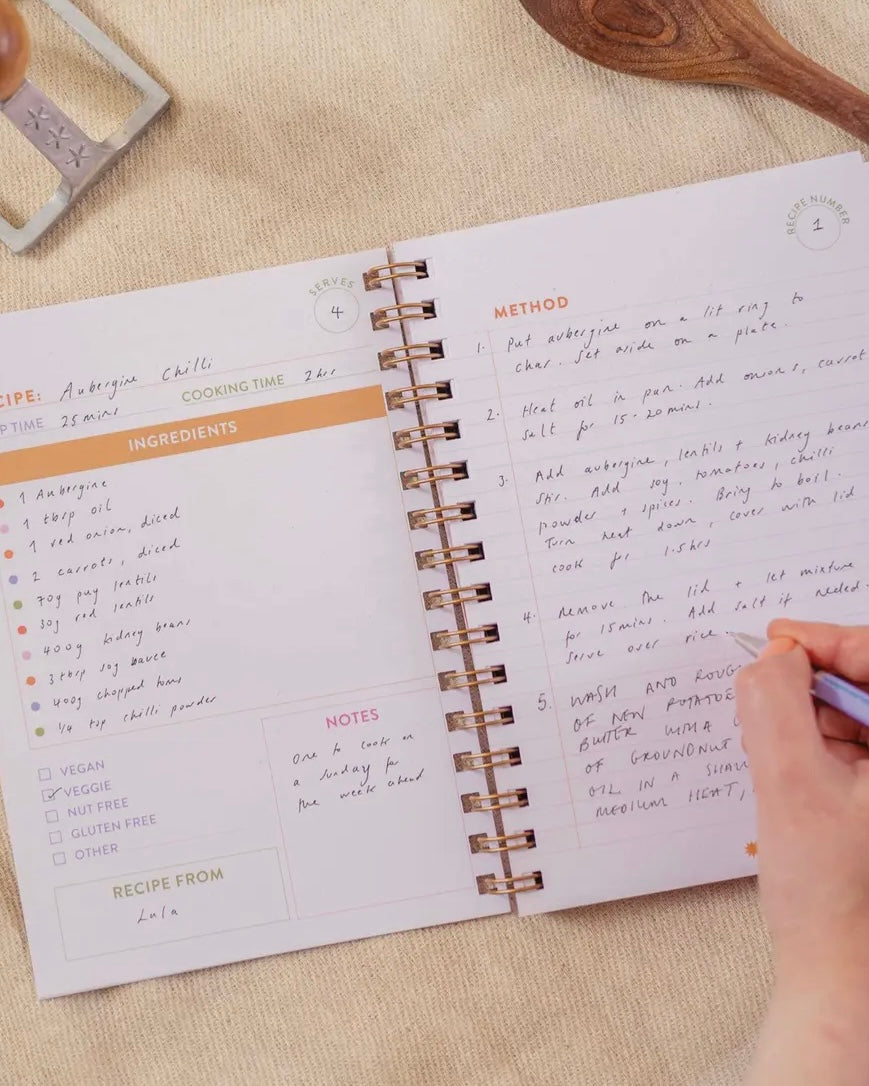 SERVES
4
CIPE: Aubergine Chilli
P TIME 25 mins COOKING TIME 2 hrs
INGREDIENTS
1 Aubergine
1 tbsp oil
1 red onion, diced
2 carrots, diced
70g puy lentils
30g red lentils
400g kidney beans
3 tbsp soy sauce
400g chopped toms
1/4 tsp chilli powder
VEGAN
VEGGIE
NUT FREE
GLUTEN FREE
OTHER
NOTES
One to cook on
a Sunday for
the week ahead
RECIPE FROM
Lula
RECIPE NUMBER
1
METHOD
1. Put aubergine on a lit ring to
char. Set aside on a plate.
2. Heat oil in pan. Add onions, carrot
salt for 15-20 mins.
3. Add aubergine, lentils + kidney beans
stir. Add soy, tomatoes, chilli
powder + spices. Bring to boil.
Turn heat down, cover with lid
cook for 1.5 hrs
4. Remove the lid + let mixture
for 15 mins. Add salt if needed.
Serve over rice.
5. WASH AND ROUG
OF NEW POTATOE
BUTTER WITH A
OF GROUNDNUT
OIL IN A SHAL
MEDIUM HEAT,